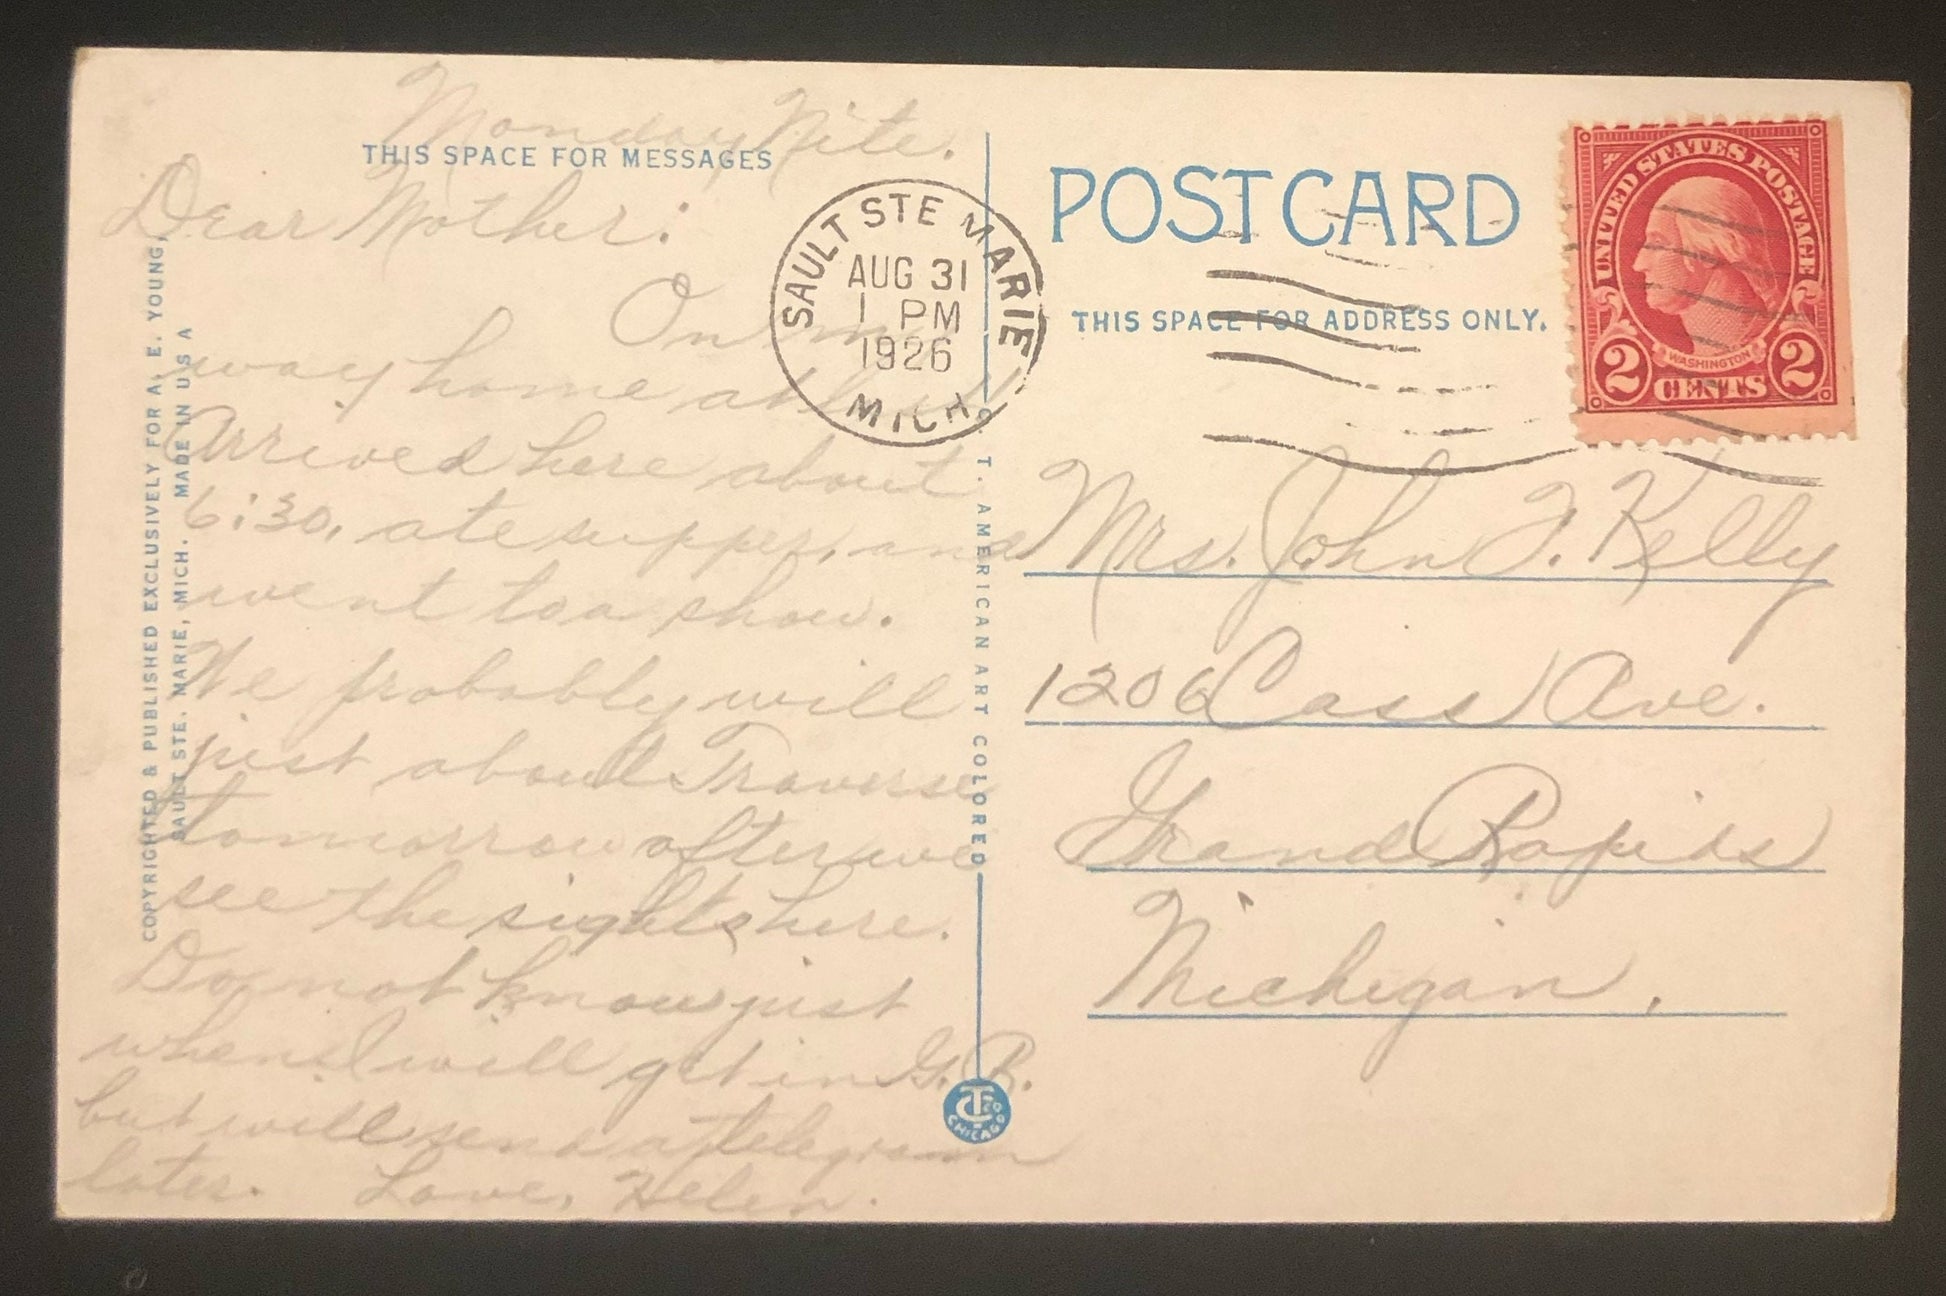 Monday Nite.
THIS SPACE FOR MESSAGES
Dear Mother:
On my
way home at last
Arrived here about
6:30, ate supper, and
went to a show.
We probably will
just about Traverse
tomorrow after we
see the sights here.
Do not know just
when I will get in G.R.
but will send a telegram
later. Love, Helen.
COPYRIGHTED & PUBLISHED EXCLUSIVELY FOR A. E. YOUNG,
SAULT STE. MARIE, MICH. MADE IN U S A
SAULT STE MARIE
AUG 31
1 PM
1926
MICH.
C. T. AMERICAN ART COLORED
CT CO
CHICAGO
POST CARD
THIS SPACE FOR ADDRESS ONLY.
UNITED STATES POSTAGE
WASHINGTON
2 CENTS 2
Mrs. John F. Kelly
1206 Cass Ave.
Grand Rapids
Michigan.